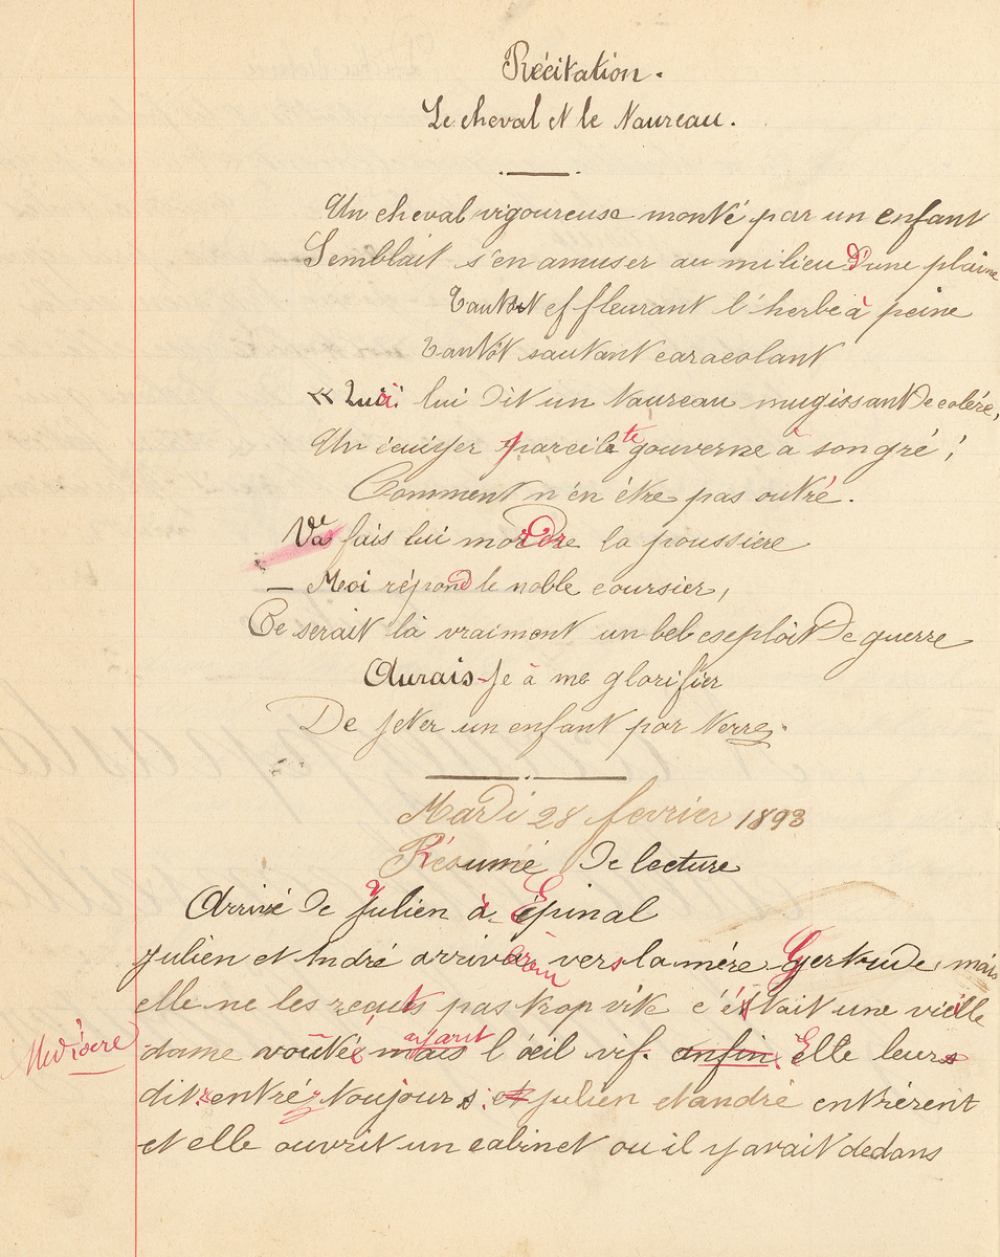 Récitation.
Le cheval et le Taureau.
Un cheval vigoureuse monté par un enfant
Semblait s'en amuser au milieu d'une plaine
Tantôt effleurant l'herbe à peine
Tantôt sautant caracolant
lui dit un taureau mugissant de colére,
Un écuiyer pareil te gouverne à son gré ;
Comment n'en être pas outré.
Va fais lui mordre la poussiere
— Moi répond le noble coursier,
Ce serait là vraiment un bel esploit de guerre
Aurais-je à me glorifier
De jeter un enfant par terre.
Mardi 28 fevrier 1893
Résumé de lecture
Arrivé de Julien à Épinal
Julien et André arrivèrent vers la mére Gertrude, mais
elle ne les reçut pas trop vite c'était une vieille
Mediocre
dame voûtée mais ayant l'œil vif. enfin Elle leurs
dit entréz toujours. et Julien et andré entrérent
et elle ouvrit un cabinet ou il y avait dedans